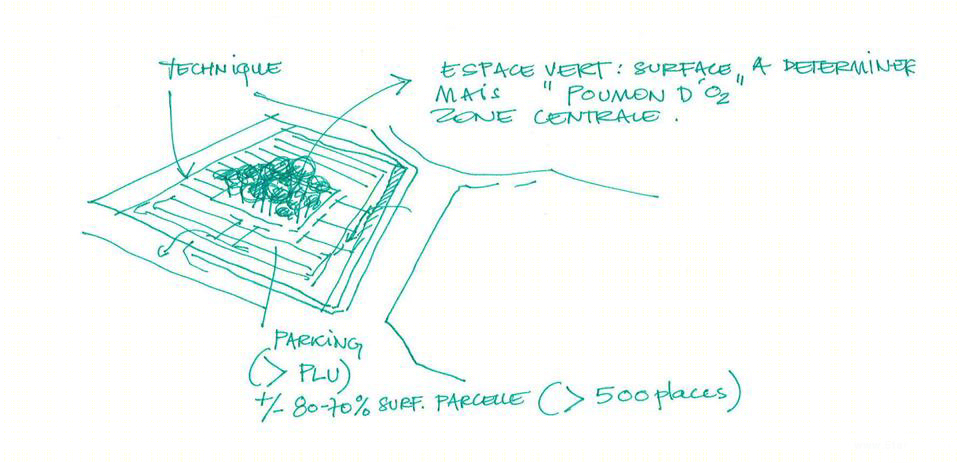 TECHNIQUE
ESPACE VERT : SURFACE À DETERMINER
MAIS " POUMON D'O2 "
ZONE CENTRALE .
PARKING
(> PLU)
+/- 80-70% SURF. PARCELLE (> 500 places)